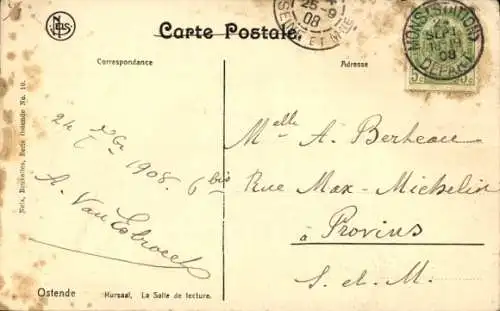 NELS
Carte Postale
25-9
08
SEINE ET MNE
MONS (STATION)
24
SEPT
08
DEPART
Correspondance
Adresse
24 7bre 1908.
A. Van Esbroeck
Melle A. Berteau
6 bis Rue Max-Michelin
à Provins
S. et M.
Nels, Bruxelles, Serie Ostende No. 10.
Ostende Kursaal, La Salle de lecture.